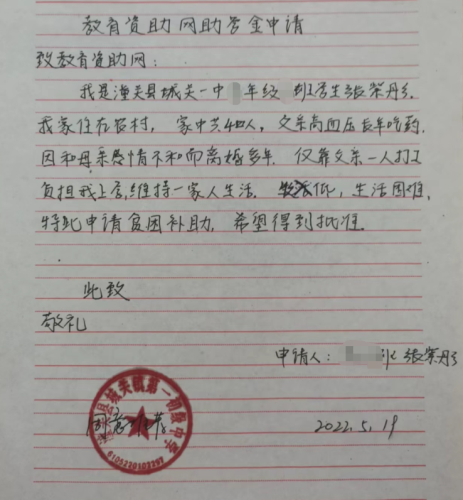 教育资助网助学金申请
致教育资助网：
我是潼关县城关一中 年级 班学生张荣丹，
我家住在农村，家中共4口人，父亲高血压长年吃药，
因和母亲感情不和而离婚多年，仅靠父亲一人打工
负担我上学，维持一家人生活。低，生活困难，
特此申请贫困补助，希望得到批准。
此致
敬礼
申请人： 张荣丹
潼关县城关镇第一初级中学
2022.5.19